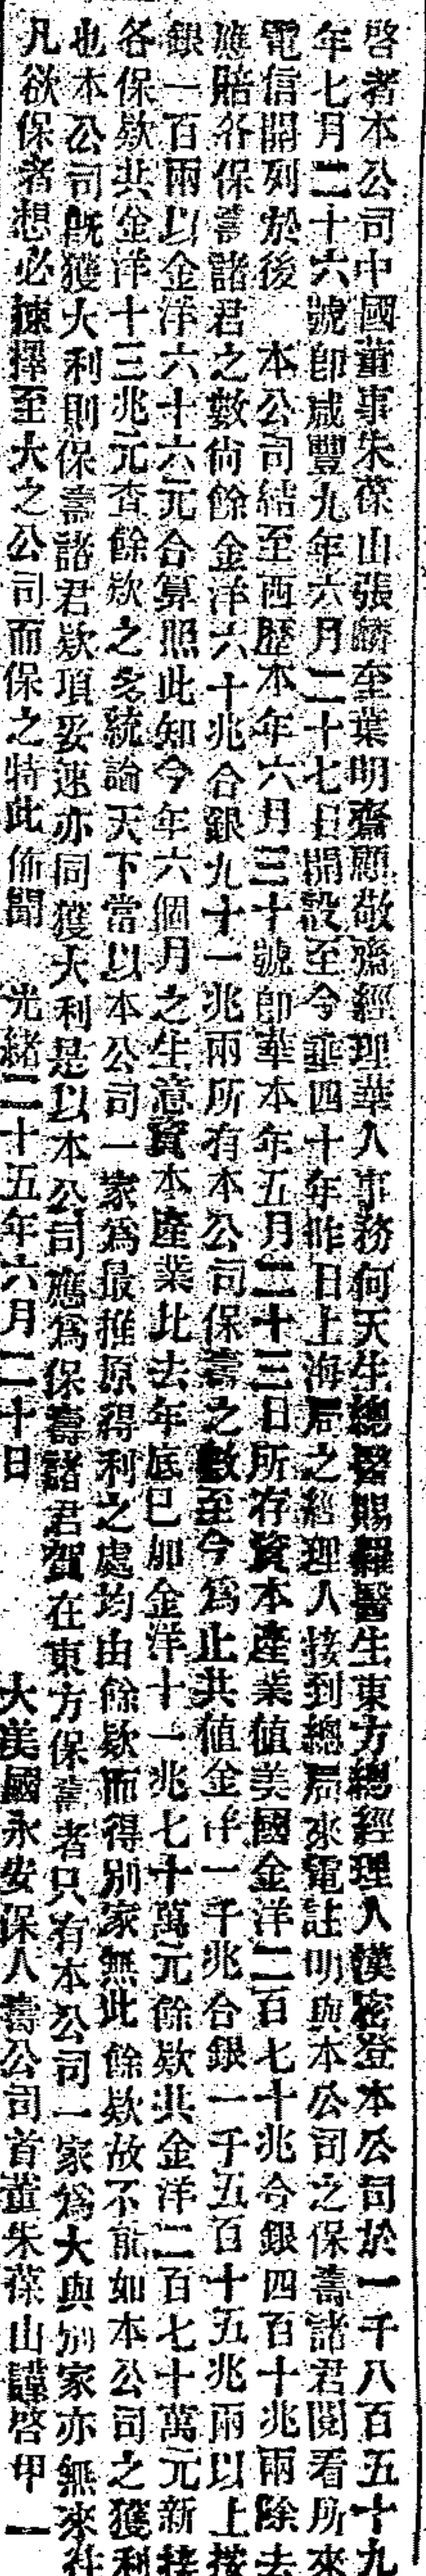 啓者本公司中國董事朱葆山張麟至葉明齋顧敬齋經理華人事務何天生總醫賜羅醫生東方總經理人漢密登本公司於一千八百五十九
年七月二十六號卽咸豐九年六月二十七日開設至今垂四十年昨日上海局之經理人接到總局來電註明與本公司之保壽諸君閱看所來
電信開列於後 本公司結至西歷本年六月三十號卽華本年五月二十三日所存資本產業值美國金洋二百七十兆合銀四百十兆兩除去
應賠各保壽諸君之數尙餘金洋六十兆合銀九十一兆兩所有本公司保壽之數至今爲止共值金洋一千兆合銀一千五百十五兆兩以上按
銀一百兩以金洋六十六元合算照此知今年六個月之生意資本產業比去年底已加金洋十一兆七十萬元餘欵共金洋二百七十萬元新接
各保欵共金洋十三兆元查餘欵之多統論天下當以本公司一家爲最推原得利之處均由餘欵而得別家無此餘欵故不能如本公司之獲利
也本公司旣獲大利則保壽諸君欵項妥速亦同獲大利是以本公司應爲保壽諸君賀在東方保壽者只有本公司一家爲大與別家亦無來往
凡欲保者想必揀擇至大之公司而保之特此佈聞 光緒二十五年六月二十日 大美國永安保人壽公司首董朱葆山謹啓甲一